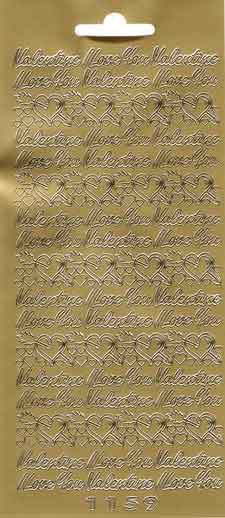 Valentine I Love You Valentine
I Love You Valentine I Love You
Valentine I Love You Valentine
I Love You Valentine I Love You
Valentine I Love You Valentine
I Love You Valentine I Love You
Valentine I Love You Valentine
I Love You Valentine I Love You
Valentine I Love You Valentine
I Love You Valentine I Love You
Valentine I Love You Valentine
I Love You Valentine I Love You
1159